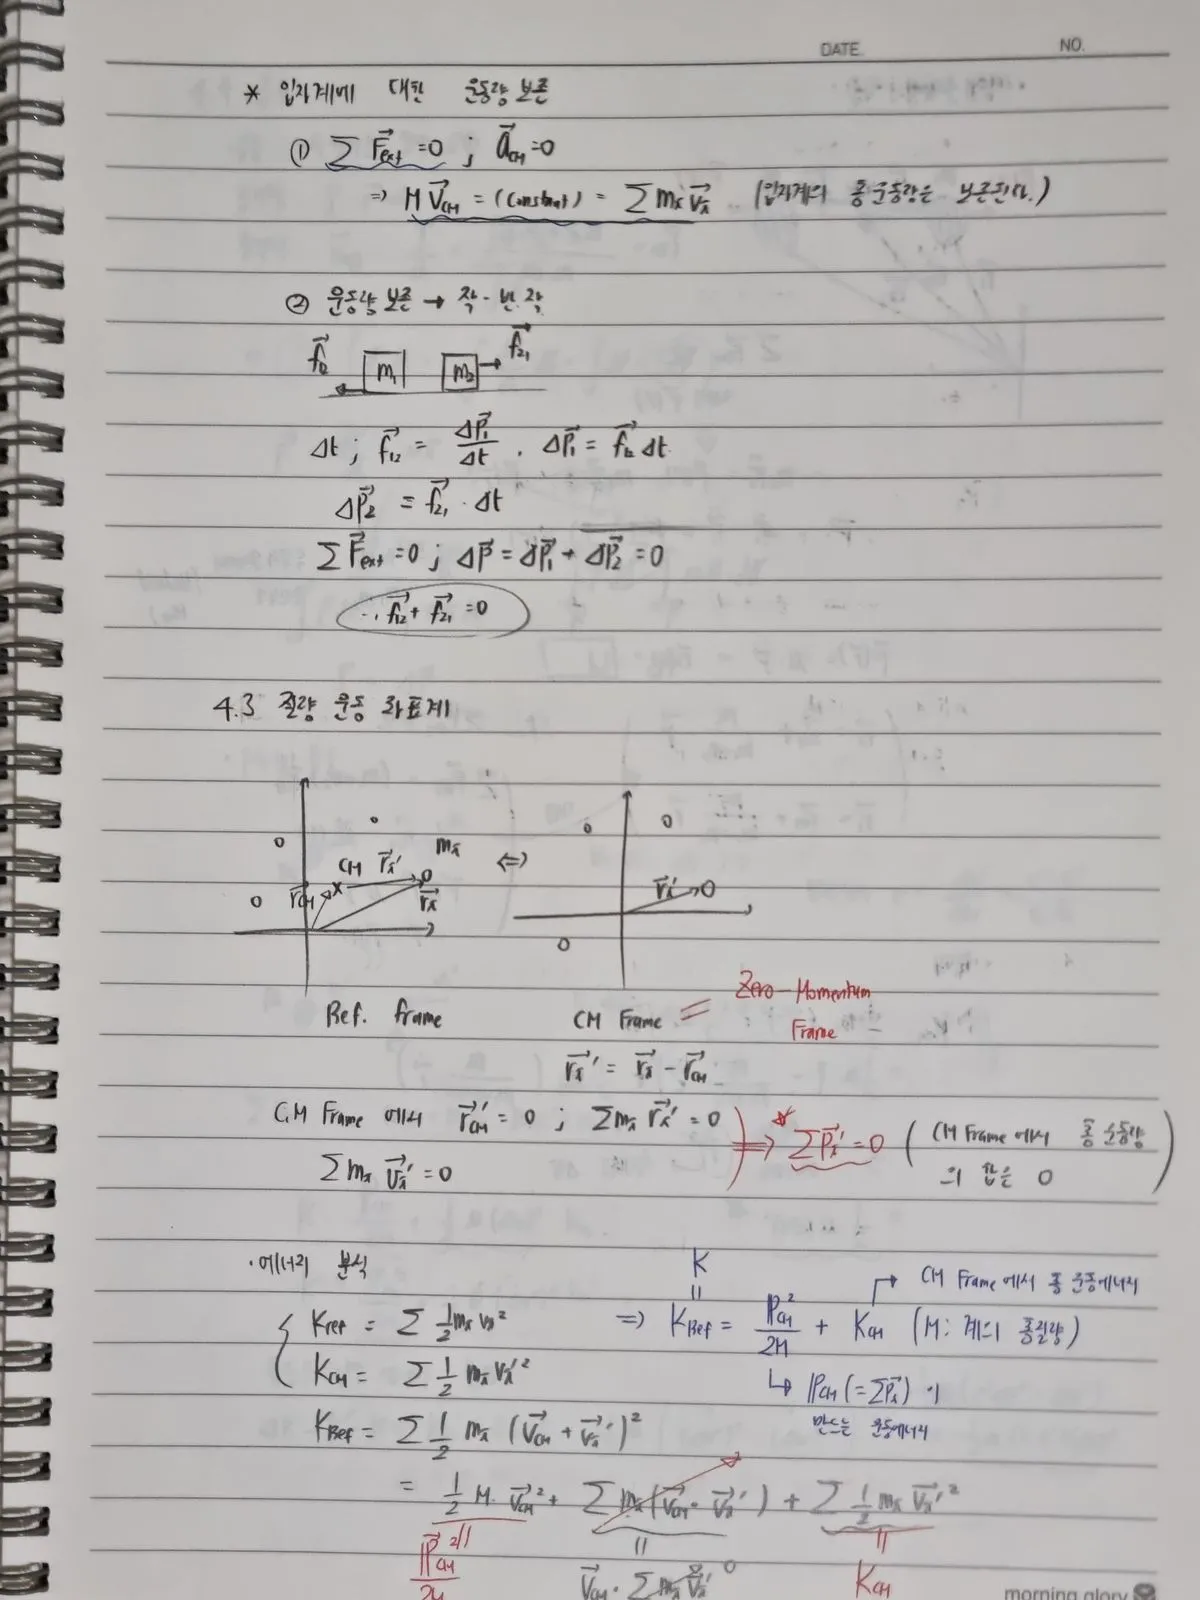 DATE. NO.
* 입자계에 대한 운동량 보존
① ∑F⃗ext = 0 ; a⃗CM = 0
⇒ MV⃗CM = (constant) = ∑mᵢv⃗ᵢ (입자계의 총 운동량은 보존된다.)
② 운동량 보존 → 작 - 반. 작
f⃗12 m₁ m₂ f⃗21
Δt ; f⃗12 = ΔP⃗1/Δt . ΔP⃗1 = f⃗12 Δt
ΔP⃗2 = f⃗21 · Δt
∑F⃗ext = 0 ; ΔP⃗ = ΔP⃗1 + ΔP⃗2 = 0
∴ f⃗12 + f⃗21 = 0
4.3 질량 운동 좌표계
CM r⃗ᵢ' mᵢ ⇔
r⃗CM r⃗ᵢ r⃗ᵢ'
Ref. frame CM Frame = Zero-Momentum Frame
r⃗ᵢ' = r⃗ᵢ - r⃗CM
C.M Frame 에서 r⃗CM' = 0 ; ∑mᵢ r⃗ᵢ' = 0 ⇒ * ∑P⃗ᵢ' = 0 ( CM Frame 에서 총 운동량
∑mᵢ v⃗ᵢ' = 0 의 합은 0 )
· 에너지 분석 K
Kref = ∑ ½mᵢvᵢ² ⇒ KRef = PCM²/2M + KCM (M: 계의 총질량) → CM Frame 에서 총 운동에너지
KCM = ∑ ½ mᵢvᵢ'² ↳ PCM (= ∑P⃗ᵢ) 이
KRef = ∑ ½ mᵢ (v⃗CM + v⃗ᵢ')² 만드는 운동에너지
= ½ M. v⃗CM² + ∑ mᵢ(v⃗CM · v⃗ᵢ') + ∑ ½ mᵢ v⃗ᵢ'²
P⃗CM²/2M v⃗CM · ∑ mᵢ v⃗ᵢ' 0 KCM
morning glory